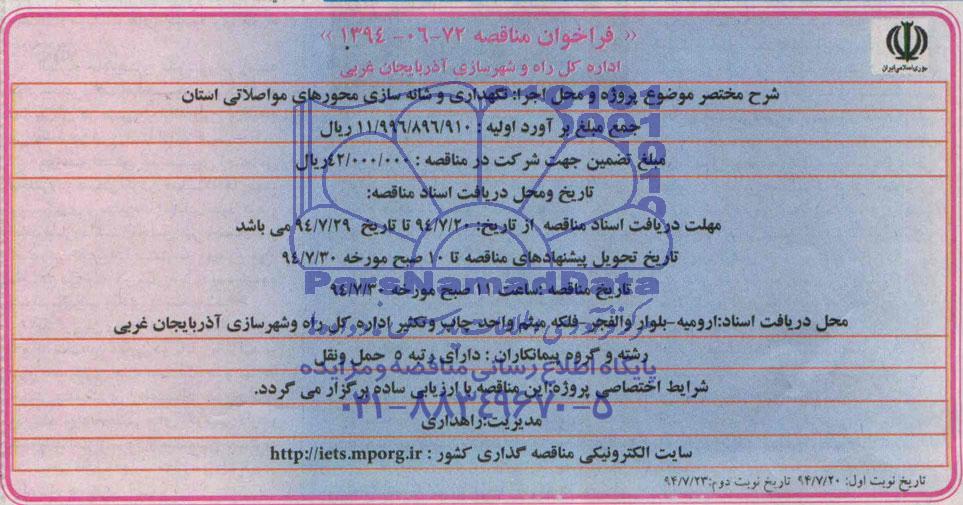 « فراخوان مناقصه ۷۲-۰۶- ۱۳۹۴ »
اداره کل راه و شهرسازی آذربایجان غربی
جمهوری اسلامی ایران
شرح مختصر موضوع پروژه و محل اجرا: نگهداری و شانه سازی محورهای مواصلاتی استان
جمع مبلغ بر آورد اولیه : ۱۱/۹۹۶/۸۹۶/۹۱۰ ریال
مبلغ تضمین جهت شرکت در مناقصه : ٤۲/۰۰۰/۰۰۰ریال
تاریخ ومحل دریافت اسناد مناقصه:
مهلت دریافت اسناد مناقصه از تاریخ: ۹٤/۷/۲۰ تا تاریخ ۹٤/۷/۲۹ می باشد
تاریخ تحویل پیشنهادهای مناقصه تا ۱۰ صبح مورخه ۹٤/۷/۳۰
ParsNamadData
تاریخ مناقصه :ساعت ۱۱ صبح مورخه ۹٤/۷/۳۰
محل دریافت اسناد:ارومیه-بلوار والفجر-فلکه میثم واحد چاپ وتکثیر اداره کل راه وشهرسازی آذربایجان غربی
رشته و گروه پیمانکاران : دارای رتبه ۵ حمل ونقل
پایگاه اطلاع رسانی مناقصه و مزایده
شرایط اختصاصی پروژه:این مناقصه با ارزیابی ساده برگزار می گردد.
۰۲۱-۸۸۳۴۹۶۷۰-۵
مدیریت:راهداری
سایت الکترونیکی مناقصه گذاری کشور : http://iets.mporg.ir
تاریخ نوبت اول: ۹۴/۷/۲۰ تاریخ نوبت دوم:۹۴/۷/۲۳